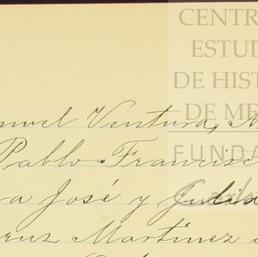 CENTR
ESTUD
DE HIST
DE ME
FUNDA
nuel Ventura, M
Pablo Francisc
a José y Julia
ruz Martínez